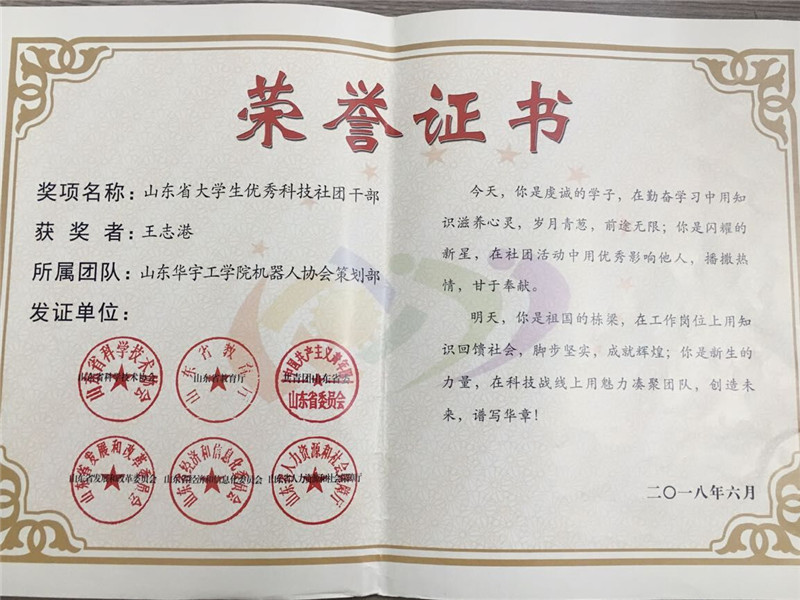 荣誉证书
奖项名称：山东省大学生优秀科技社团干部
获奖者：王志港
所属团队：山东华宇工学院机器人协会策划部
发证单位：
山东省科学技术协会
山东省教育厅
共青团山东省委
山东省科学技术协会
山东省教育厅
中国共产主义青年团
山东省委员会
山东省发展和改革委员会
山东省经济和信息化委员会
山东省人力资源和社会保障厅
山东省发展和改革委员会
山东省经济和信息化委员会
山东省人力资源和社会保障厅
今天，你是虔诚的学子，在勤奋学习中用知
识滋养心灵，岁月青葱，前途无限；你是闪耀的
新星，在社团活动中用优秀影响他人，播撒热
情，甘于奉献。
明天，你是祖国的栋梁，在工作岗位上用知
识回馈社会，脚步坚实，成就辉煌；你是新生的
力量，在科技战线上用魅力凑聚团队，创造未
来，谱写华章！
二〇一八年六月